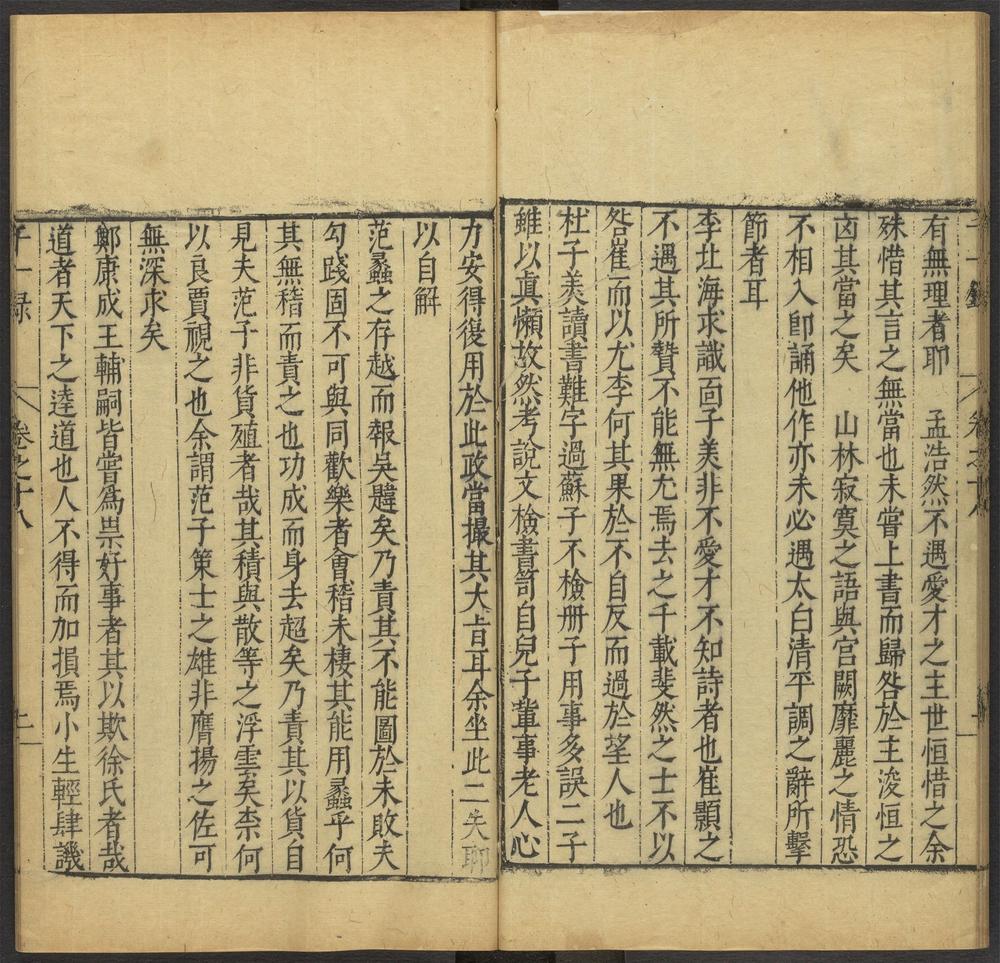 有無理者耶　孟浩然不遇愛才之主世恒惜之余
殊惜其言之無當也未嘗上書而歸咎於主浚恒之
凶其當之矣　山林寂寞之語與宫闕靡麗之情恐
不相入卽誦他作亦未必遇太白清平調之辭所擊
節者耳
李北海求識面子美非不愛才不知詩者也崔顥之
不遇其所贄不能無尤焉去之千載斐然之士不以
咎崔而以尤李何其果於不自反而過於望人也
杜子美讀書難字過蘇子不檢册子用事多誤二子
雖以眞懶故然考說文檢書笥自兒子軰事老人心
力安得復用於此政當撮其大㫖耳余坐此二失聊
以自解
范蠡之存越而報吳韙矣乃責其不能圖於未敗夫
勾踐固不可與同歡樂者會稽未棲其能用蠡乎何
其無稽而責之也功成而身去超矣乃責其以貨自
見夫范子非貨殖者哉其積與散等之浮雲矣柰何
以良賈視之也余謂范子策士之雄非鷹揚之佐可
無深求矣
鄭康成王輔嗣皆嘗爲祟好事者其以欺徐氏者哉
道者天下之逹道也人不得而加損焉小生輕肆譏
子一录
卷之十八
二